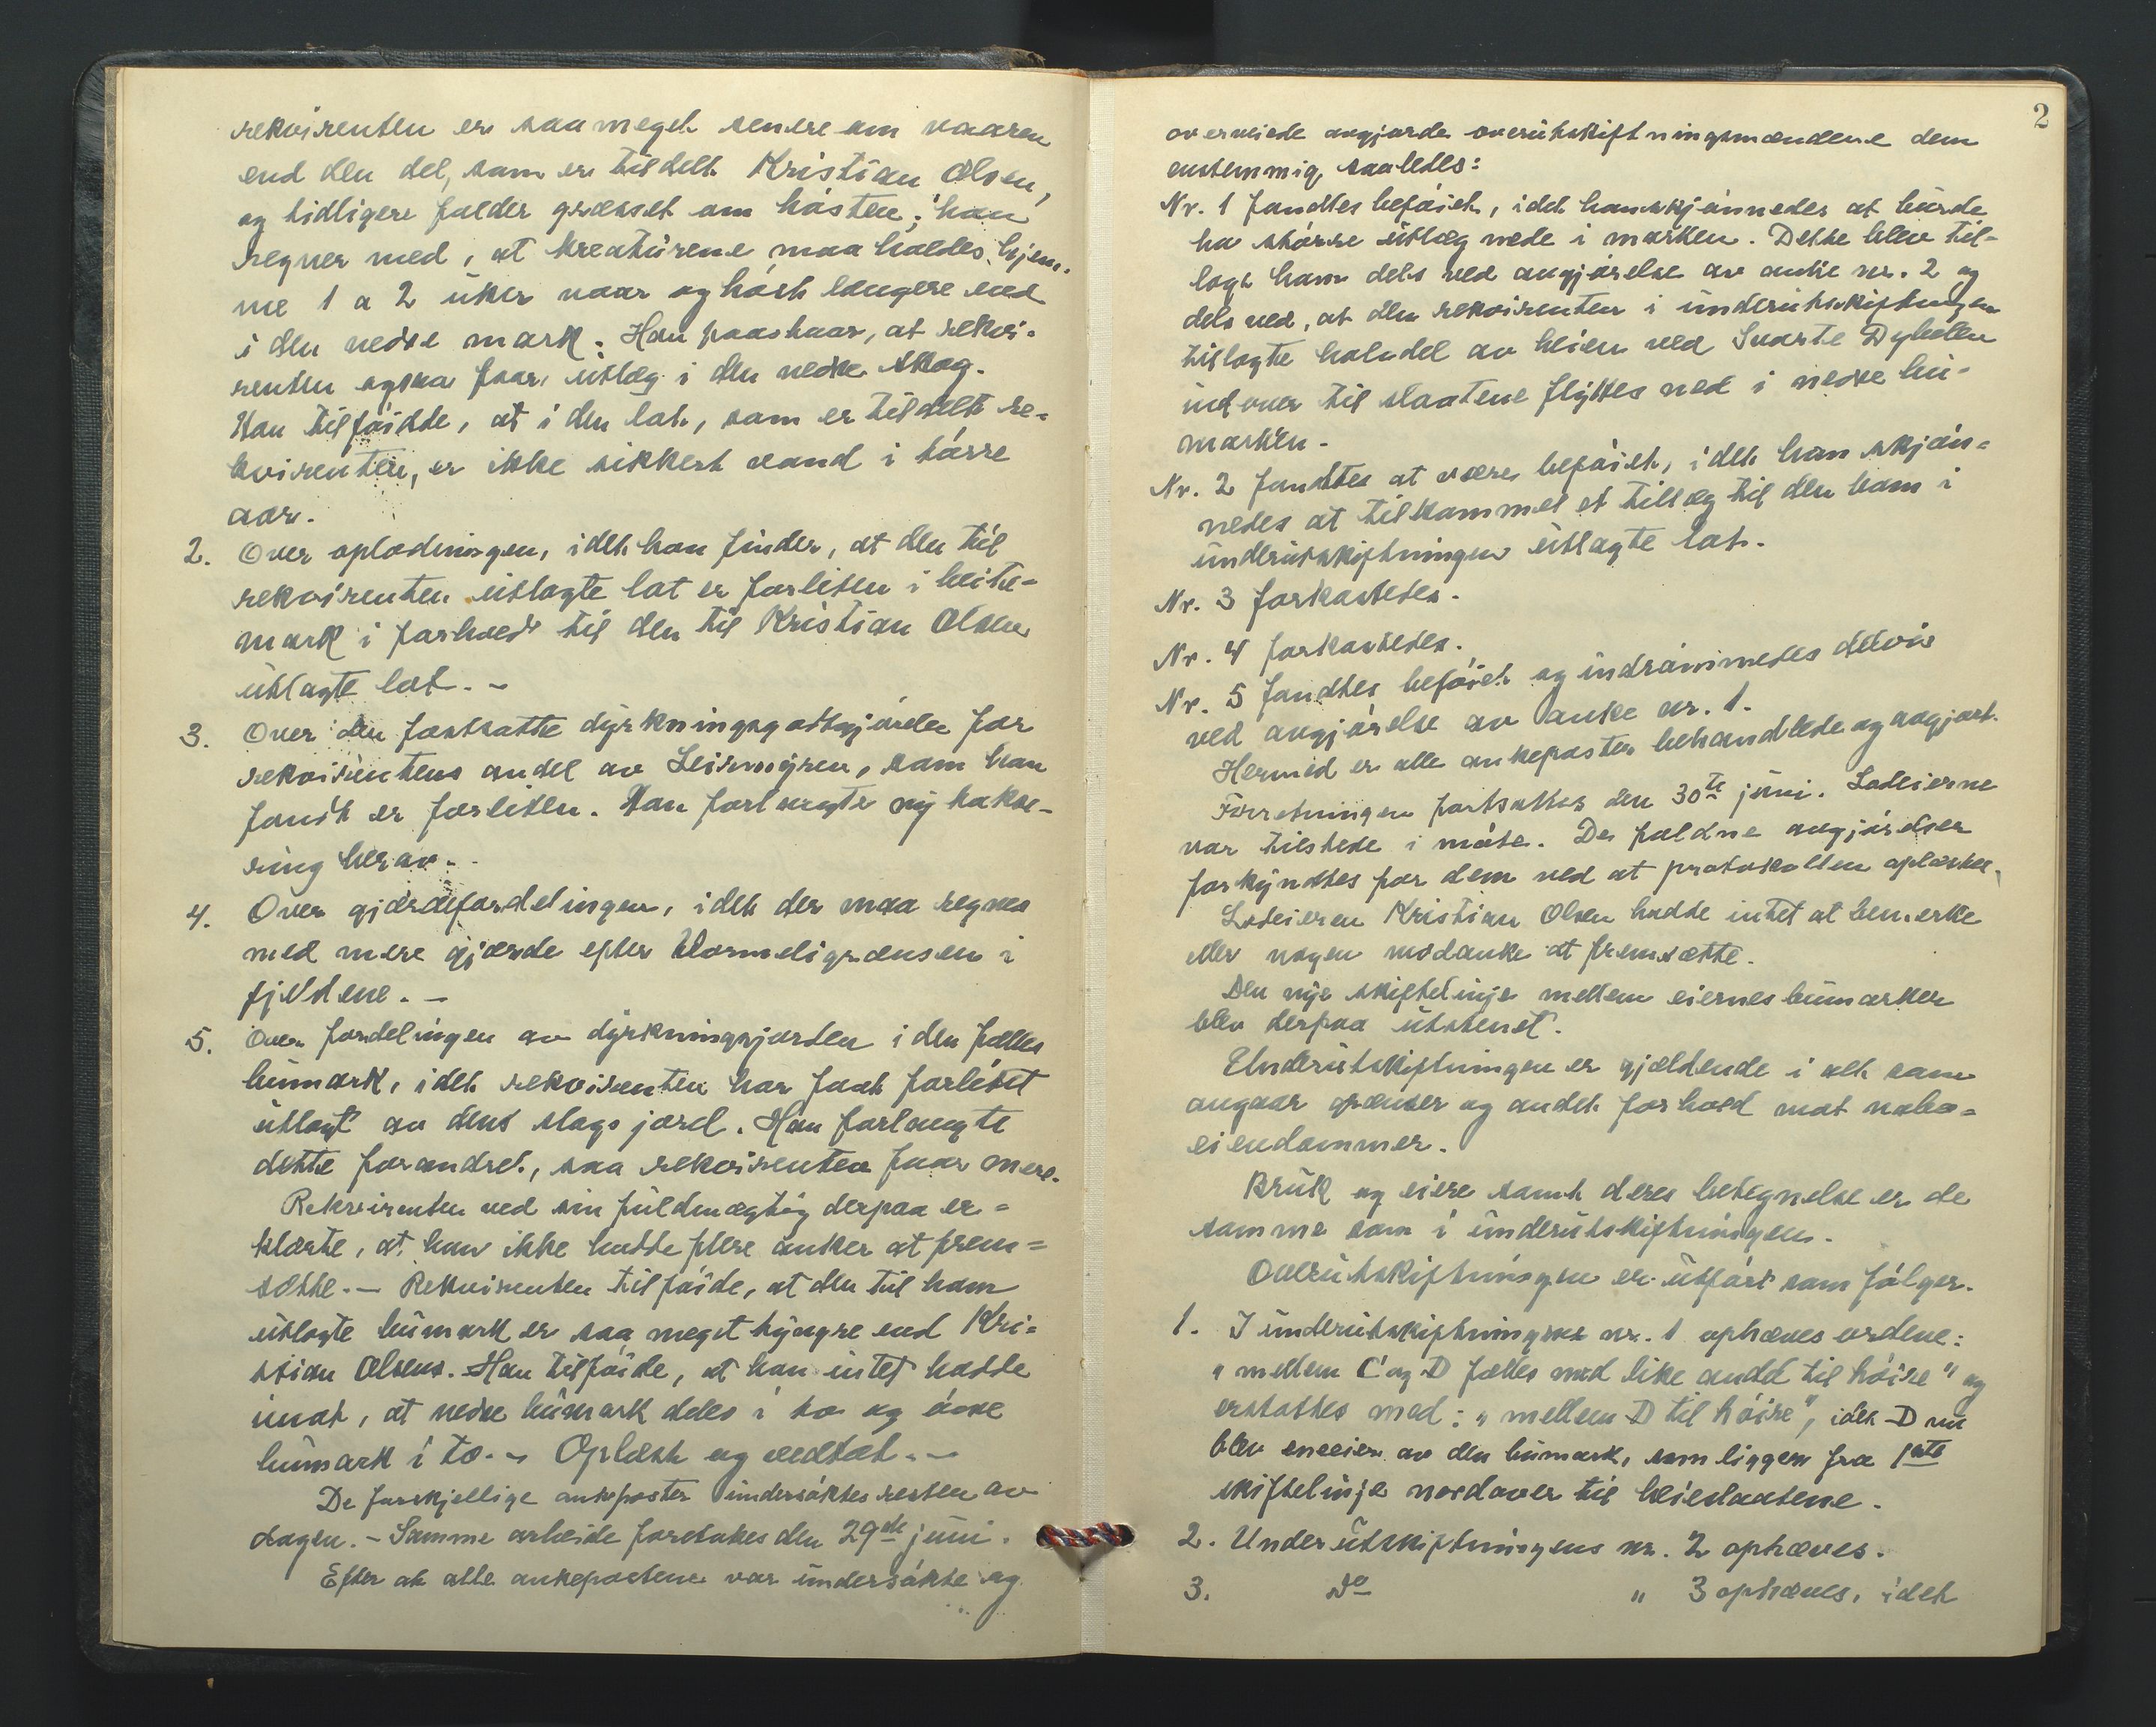 rekvirenten er saa meget senere om vaaren
end den del, som er tildelt Kristian Olsen,
og tidligere falder græsset om høsten; han
regner med, at kreaturene maa holdes hjem-
me 1 a 2 uker vaar og høst længere end
i den nedre mark. Han paastaar, at rekvi-
renten ogsaa faar utlæg i den nedre skog.
Han tilføidde, at i den lot, som er tildelt re-
kvirenten, er ikke sikkert vand i tørre
aar.
2. Over oplodningen, idet han finder, at den til
rekvirenten utlagte lot er forliten i beite-
mark i forhold til den til Kristian Olsen
utlagte lot. -
3. Over den fastsatte dyrkningsgodtgjørelse for
rekvirentens andel av Leirmyren, som han
fandt er forliten. Han forlangte ny takse-
ring herav. -
4. Over gjærdefordelingen, idet der maa regnes
med mere gjærde efter Wormeligrænsen i
fjeldene. -
5. Over fordelingen av dyrkningsjorden i den fælles
bumark, idet rekvirenten har faat forlitet
utlagt av dens slags jord. Han forlangte
dette forandret, saa rekvirenten faar mere.
Rekvirenten ved sin fuldmægtig derpaa er-
klærte, at han ikke hadde flere anker at frem-
sætte. - Rekvirenten tilføide, at den til ham
utlagte bumark er saa meget tyngre end Kri-
stian Olsens. Han tilføide, at han intet hadde
imot, at nedre bumark deles i to og øvre
bumark i to. - Oplæst og vedtat. -
De forskjellige ankeposter undersøktes resten av
dagen. - Samme arbeide foretokes den 29de juni.
Efter at alle ankepostene var undersøkte og
2
overveiede avgjorde overutskiftningsmændene dem
enstemmig saaledes:
Nr. 1 fandtes beføiet, idet han skjønnedes at burde
ha større utlæg nede i marken. Dette blev til-
lagt ham dels ved avgjørelse av anke nr. 2 og
dels ved, at den rekvirenten i underutskiftningen
tillagte halvdel av beien ved Svarte Dyhellen
utover til slaatene flyttes ned i nedre bu-
marken.
Nr. 2 fandtes at være beføiet, idet han skjøn-
nedes at tilkommet et tillæg til den ham i
underutskiftningen utlagte lot.
Nr. 3 forkastedes.
Nr. 4 forkastedes.
Nr. 5 fandtes beføiet og indrømmedes delvis
ved avgjørelse av anke nr. 1.
Hermed er alle ankeposter behandlede og avgjort.
Forretningen fortsattes den 30te juni. Lodeierne
var tilstede i møte. De faldne avgjørelser
forkyndtes for dem ved at protokollen oplæstes.
Lodeieren Kristian Olsen hadde intet at bemerke
eller nogen motanke at fremsætte.
Den nye skiftelinje mellem eiernes bumarker
blev derpaa utstenet.
Underutskiftningen er gjældende i alt som
angaar grænser og andet forhold mot nabo-
eiendommer.
Bruk og eiere samt deres betegnelse er de
samme som i underutskiftningen.
Overutskiftningen er utført som følger.
1. I underutskiftningens nr. 1 ophæves ordene:
" mellem C og D fælles med like andel til høire" og
erstattes med: " mellem D til høire", idet D nu
blev eneeier av den bumark, som ligger fra 1ste
skiftelinje nordover til beieslaatene.
2. Underutskiftningens nr. 2 ophæves.
3. Do " 3 ophæves, idet